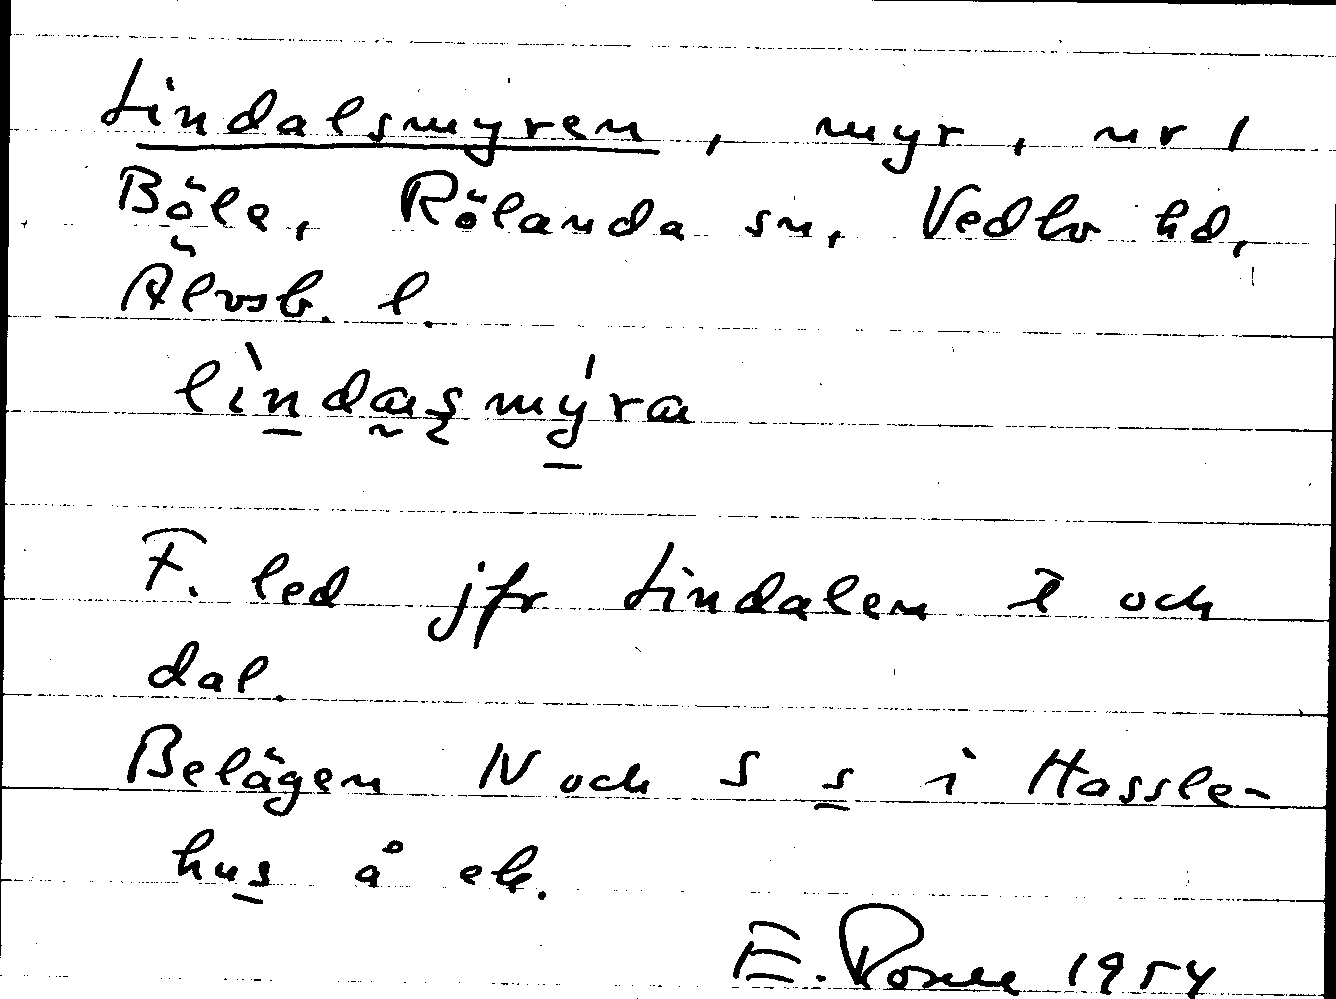 Lindalsmyren, myr, nr 1
Böle, Rölanda sn, Vedbo hd,
Älvsb. l.
lìndasmýra
F. led jfr Lindalen och
dal.
Belägen N och S s i Hassle-
hus å ek.
E. Rosell 1954